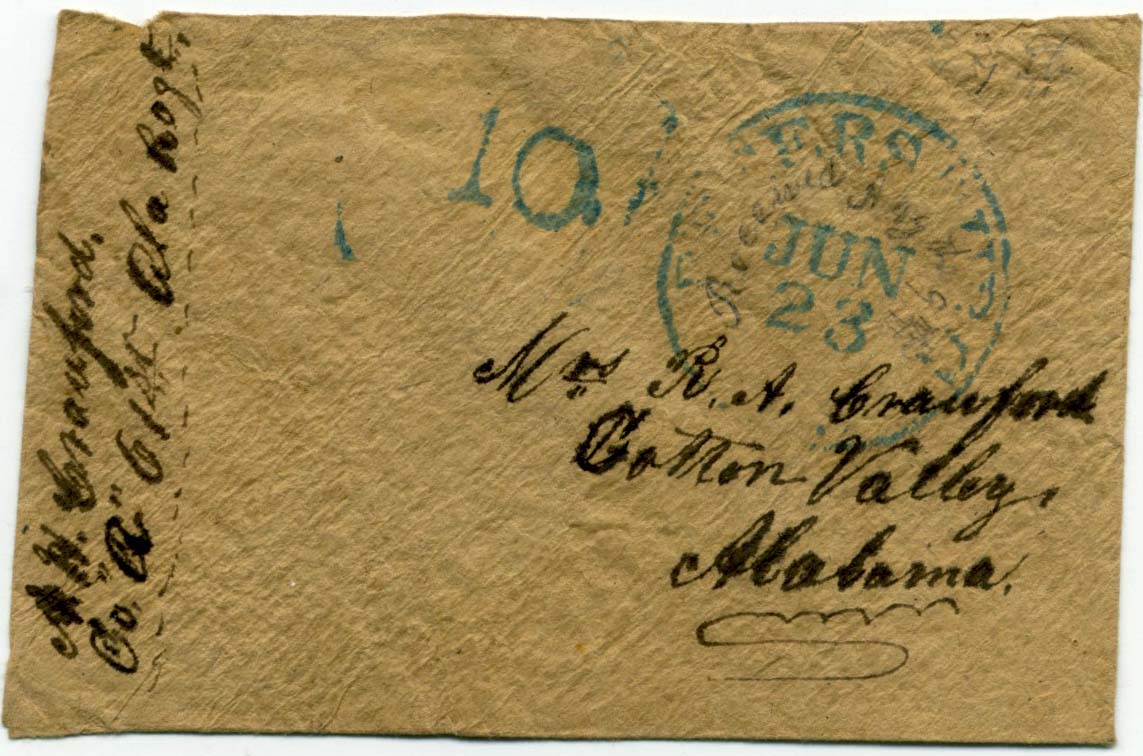 Crawford.
Co. 61st Ala Regt.
10
JUN
23
Received
Mrs R. A. Crawford
Cotton Valley,
Alabama.